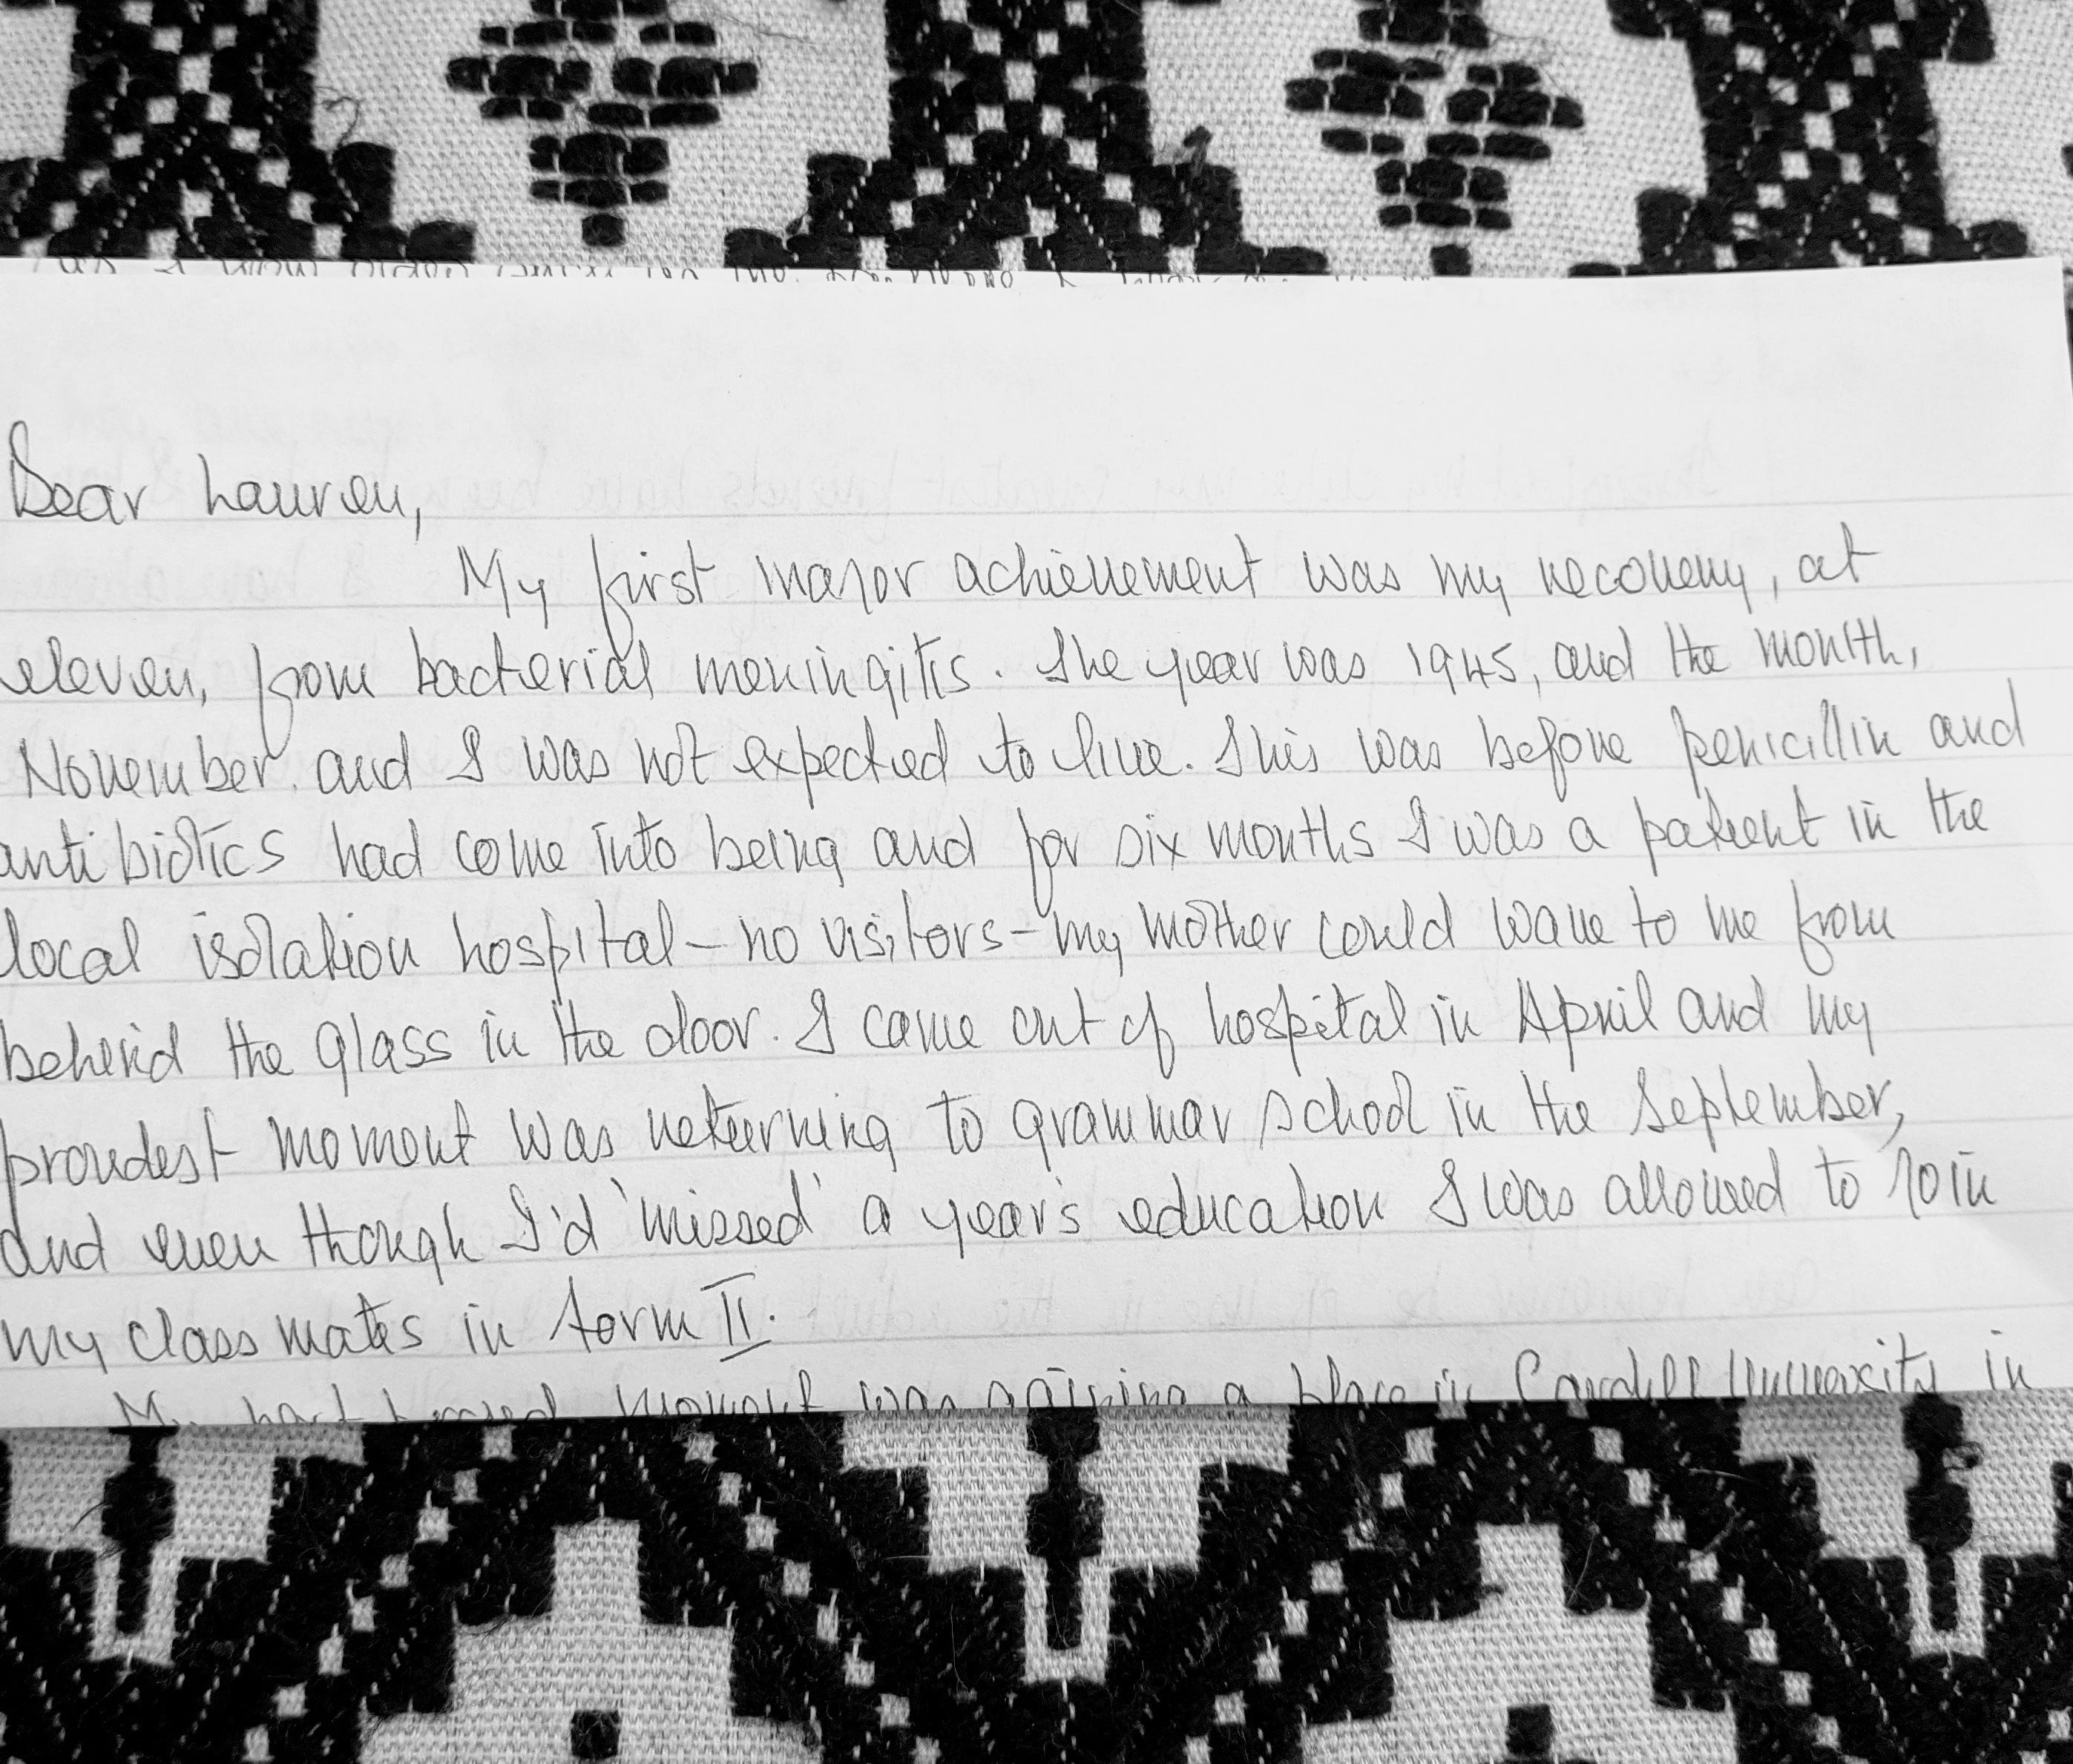 Dear Lauren,
My first major achievement was my recovery, at
eleven, from bacterial meningitis. The year was 1945, and the month,
November. and I was not expected to live. This was before penicillin and
antibiotics had come into being and for six months I was a patient in the
local isolation hospital - no visitors - my mother could wave to me from
behind the glass in the door. I came out of hospital in April and my
proudest moment was returning to grammar school in the September,
and even though I'd 'missed' a year's education I was allowed to join
my class mates in form II.
My next proud moment was gaining a place in Cardiff University in